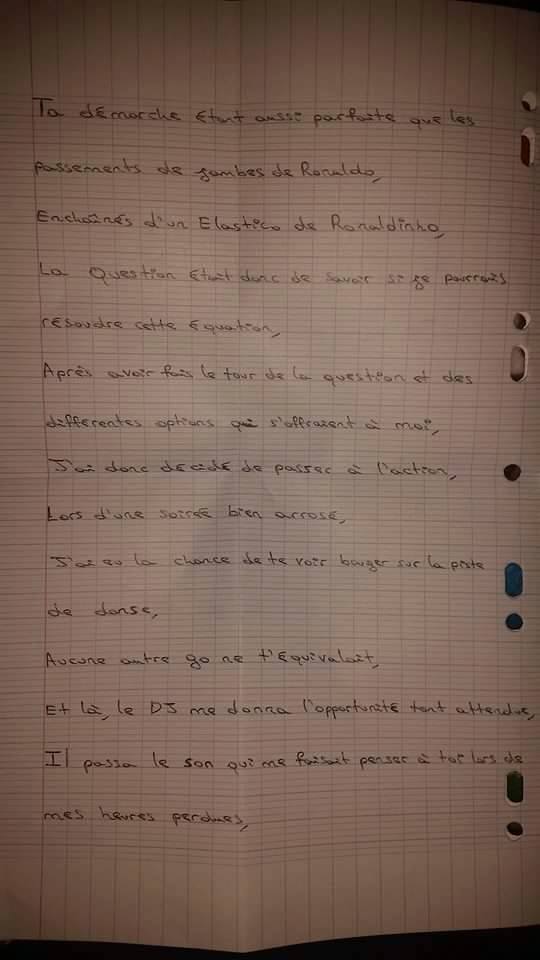 Ta démarche étant aussi parfaite que les
passements de jambes de Ronaldo,
Enchaînés d'un Elastico de Ronaldinho,
La Question était donc de savoir si je pourrais
résoudre cette équation,
Après avoir fais le tour de la question et des
différentes options qui s'offraient à moi,
J'ai donc décidé de passer à l'action,
Lors d'une soirée bien arrosé,
J'ai eu la chance de te voir bouger sur la piste
de danse,
Aucune autre go ne t'équivalait,
Et là, le DJ me donna l'opportunité tant attendue,
Il passa le son qui me faisait penser à toi lors de
mes heures perdues,